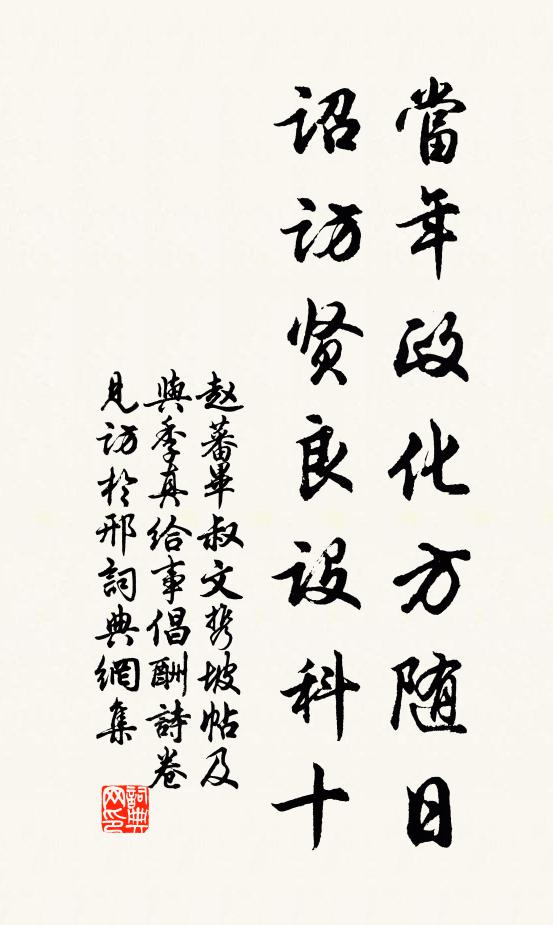 當年政化方随日
詔訪贤良設科十
赵蕃畢叔文携坡帖及
與季真給事倡酬詩卷
見訪於邢詞典網集
詞典
网印